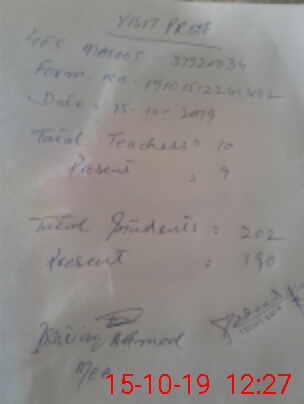 VISIT PROOF
GES MACHOT 37320234
Form. No. 19101512241402
Date = 15-10-2019
Total Teachers = 10
Present = 9
Total Students = 202
Present = 190
Ahmed
MEA
15-10-19 12:27